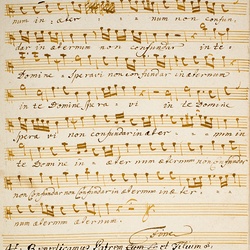 num in æter num non confun
dar in æternum non confundar in te
Domine speravi non confundar in æternum
in te Domine spera vi in te Domine
spera vi non confundar in æter num in
te Domine in æter num æternum non confundar
non confundar non confundar in æternum in æter
num æternum æternum.
Fine
Patrem et Filium